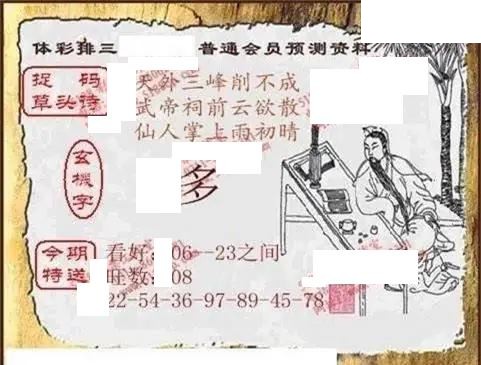 体彩排三 普通会员预测资料
捉码
草头诗
天外三峰削不成
武帝祠前云欲散
仙人掌上雨初晴
玄機字
多
今期
特送
看好:06--23之间
旺数:08
22-54-36-97-89-45-78